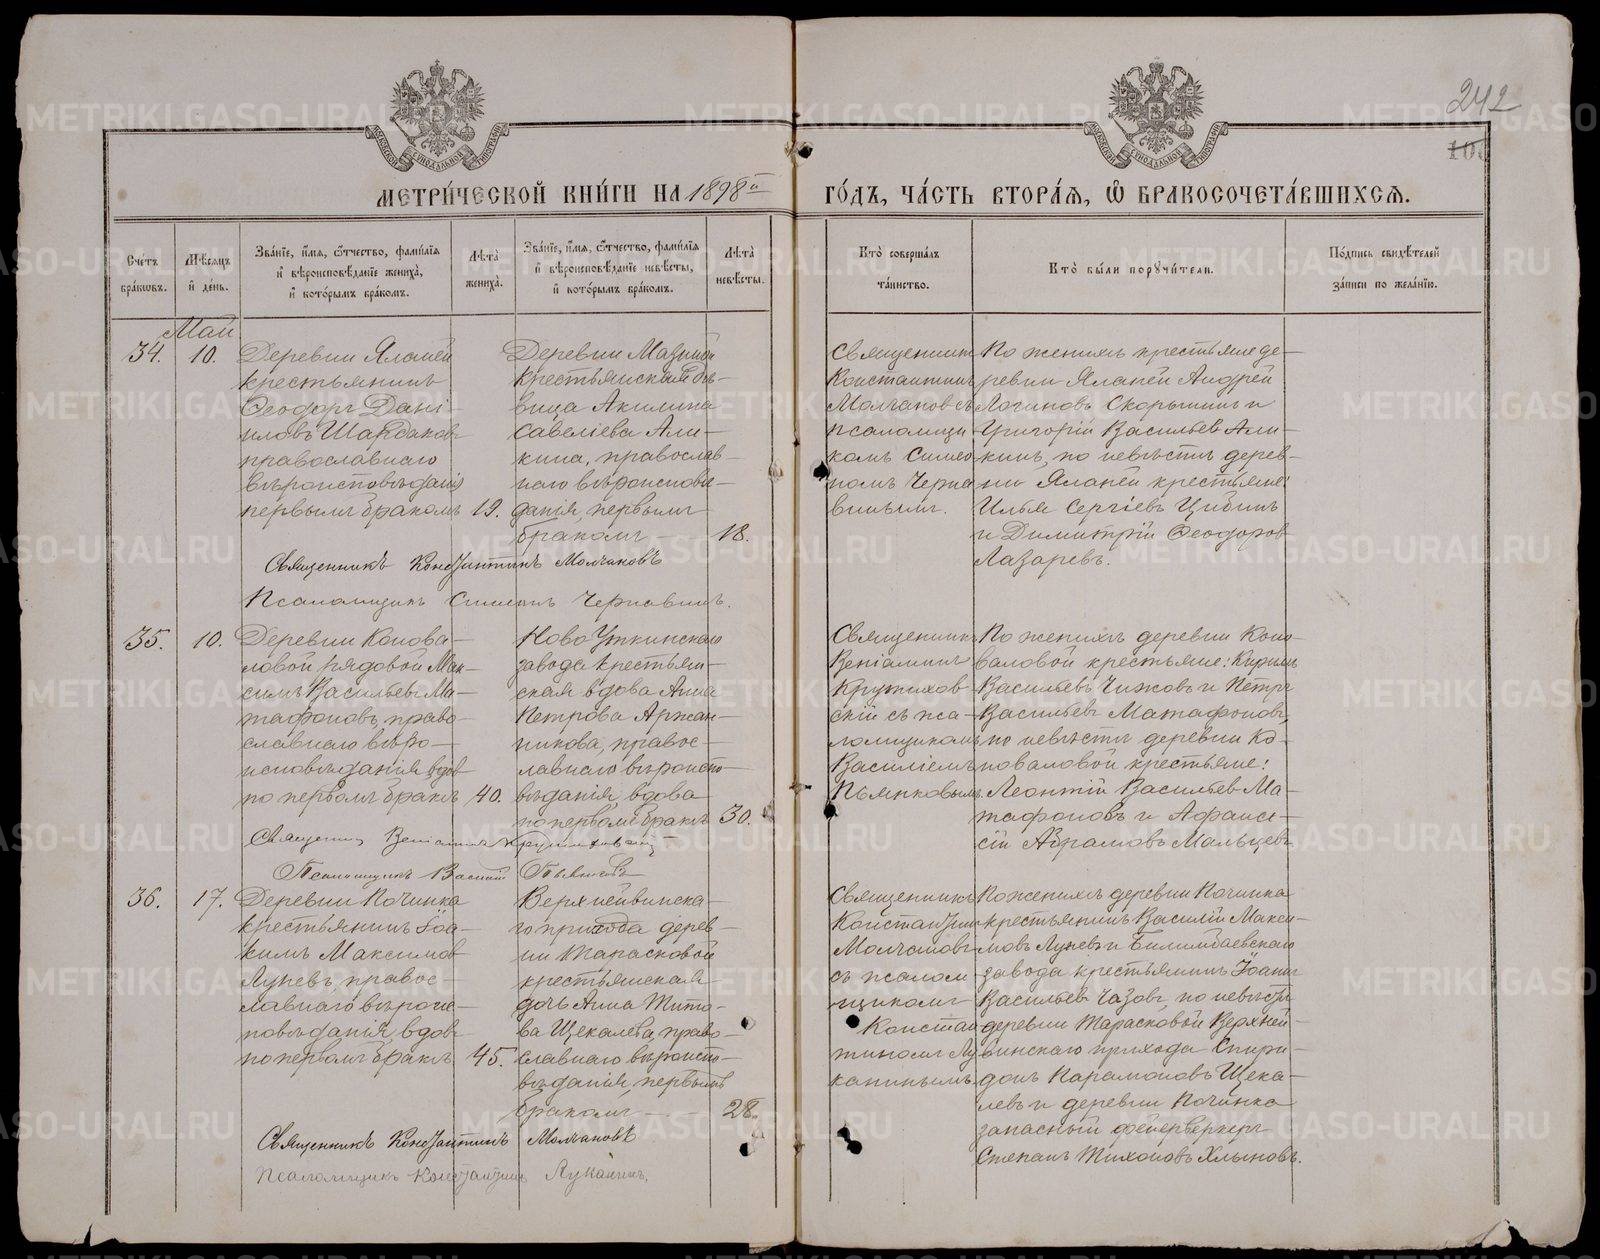 242
МЕТРИ́ЧЕСКОЙ КНИ́ГИ НА 1898й
ГО́ДЪ, ЧА́СТЬ ВТОРА́Я, Ѡ БРАКОСОЧЕТА́ВШИХСЯ.
Сче́тъ бра́ковъ.
Мѣ́сяцъ и҆ де́нь.
Зва́нїе, и҆́мя, ѻ҆́тчество, фами́лїя и҆ вѣроисповѣ́данїе жениха̀, и҆ кото́рымъ бра́комъ.
Лѣ́та жениха̀.
Зва́нїе, и҆́мя, ѻ҆́тчество, фами́лїя и҆ вѣроисповѣ́данїе невѣ́сты, и҆ кото́рымъ бра́комъ.
Лѣ́та невѣ́сты.
Кто̀ соверша́лъ та́инство.
Кто̀ бы́ли порꙋчи́тели.
По́дпись свидѣ́телей за́писи по жела́нїю.
Май
34.
10.
Деревни Яланей
крестьянинъ
Ѳеодоръ Дані-
иловъ Шардаковъ
православнаго
вѣроисповѣданія
первымъ бракомъ
19.
Деревни
крестьянская дѣ-
вица Акилина
Савеліева Али-
кина, православ-
наго вѣроисповѣ-
данія, первымъ
бракомъ
18.
Священникъ
Константинъ
Молчановъ съ
псаломщи-
комъ Симео-
номъ Черна-
винымъ.
По женихѣ крестьяне де-
ревни Яланей Андрей
Логиновъ Скорынинъ и
Григорій Васильевъ Али-
кинъ, по невѣстѣ дерев-
ни Яланей крестьяне:
Илья Сергіевъ Цибинъ
и Димитрій Ѳеодоровъ
Лазаревъ.
Священникъ Константинъ Молчановъ
Псаломщикъ Симеонъ Чернавинъ.
35.
10.
Деревни Конова-
ловой рядовой Мак-
симъ Васильевъ Ма-
тафоновъ, право-
славнаго вѣро-
исповѣданія, вдовъ
по первомъ бракѣ
40.
Ново Уткинскаго
завода крестьян-
ская вдова Анна
Петрова Аржан-
никова, правос-
лавнаго вѣроиспо-
вѣданія, вдова
по первомъ бракѣ
30.
Священникъ
Веніаминъ
Кружков-
скій съ пса-
ломщикомъ
Василіемъ
Пьянковымъ
По женихѣ деревни Коно-
валовой крестьяне: Кирилъ
Васильевъ Чижовъ и Петръ
Васильевъ Матафоновъ,
по невѣстѣ деревни Ко-
новаловой крестьяне:
Леонтій Васильевъ Ма-
тафоновъ и Афанас-
сій Абрамовъ Мальцевъ
Священникъ Веніаминъ
Псаломщикъ Василій Пьянковъ
36.
17.
Деревни Починка
крестьянинъ Іоа-
кимъ Максимовъ
Луневъ, правос-
лавнаго вѣроис-
повѣданія, вдовъ
по первомъ бракѣ
45.
Верхнейвинска-
го прихода дерев-
ни Тарасковой
крестьянская
дочь Анна Тито-
ва Щекалева, право-
славнаго вѣроиспо-
вѣданія, первымъ
бракомъ
28.
Священникъ
Константинъ
Молчановъ
съ псалом-
щикомъ
Констан-
тиномъ Лу-
канинымъ.
По женихѣ деревни Починка
крестьянинъ Василій Макси-
мовъ Луневъ и Билимбаевскаго
завода крестьянинъ Іоаннъ
Васильевъ Чазовъ, по невѣстѣ
деревни Тарасковой Верхней-
винскаго прихода Спири-
донъ Парамоновъ Щека-
левъ и деревни Починка
запасный фейерверкеръ
Степанъ Тихоновъ Хлыновъ.
Священникъ Константинъ Молчановъ
Псаломщикъ Константинъ Луканинъ.
METRIKI.GASO-URAL.RU